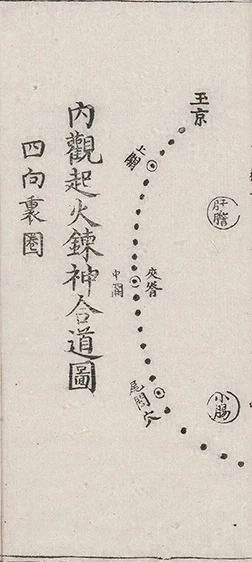 肝膽
小腸
玉京
夾脊
尾閭穴
上關
中關
內觀起火鍊神合道圖
四向裏圈